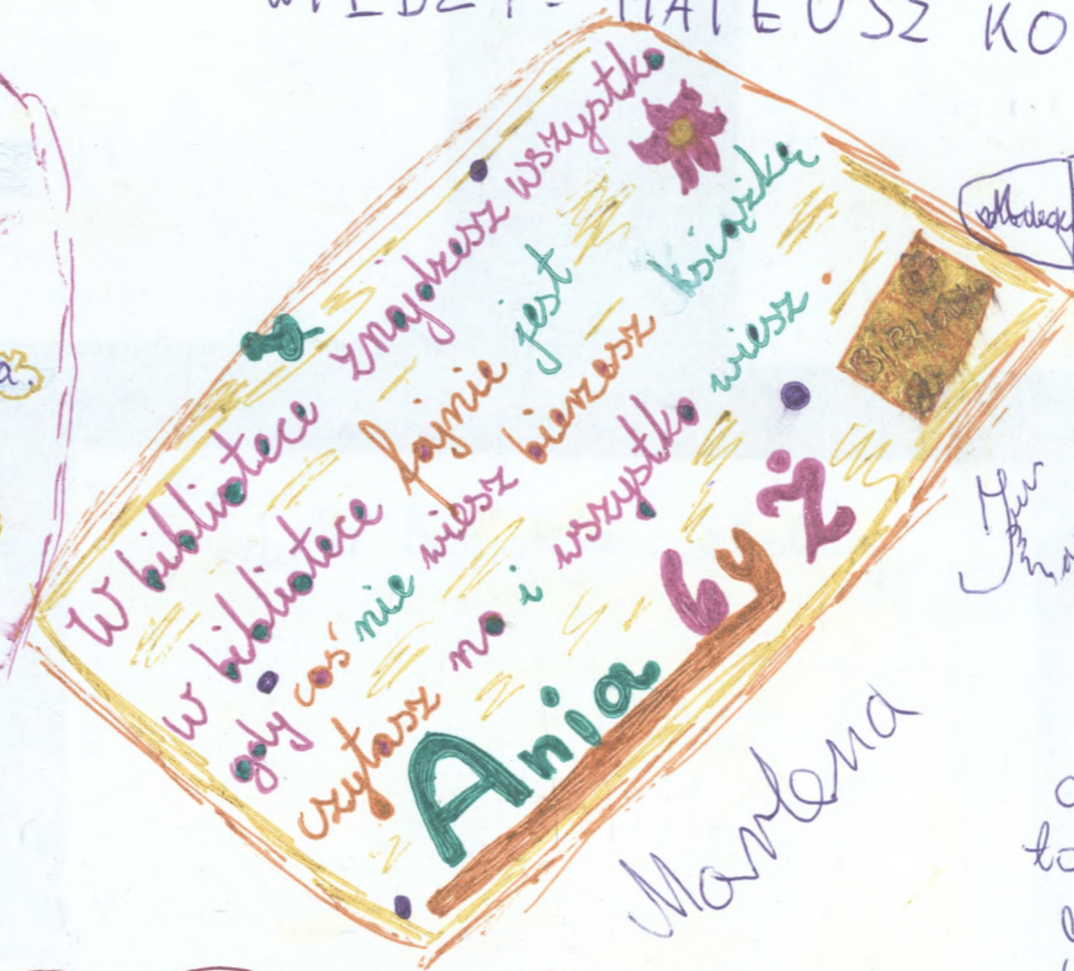 MATEUSZ KO
W bibliotece znajdziesz wszystko
w bibliotece fajnie jest
gdy coś nie wiesz bierzesz książkę
czytasz no i wszystko wiesz.
Ania byż
Marlena